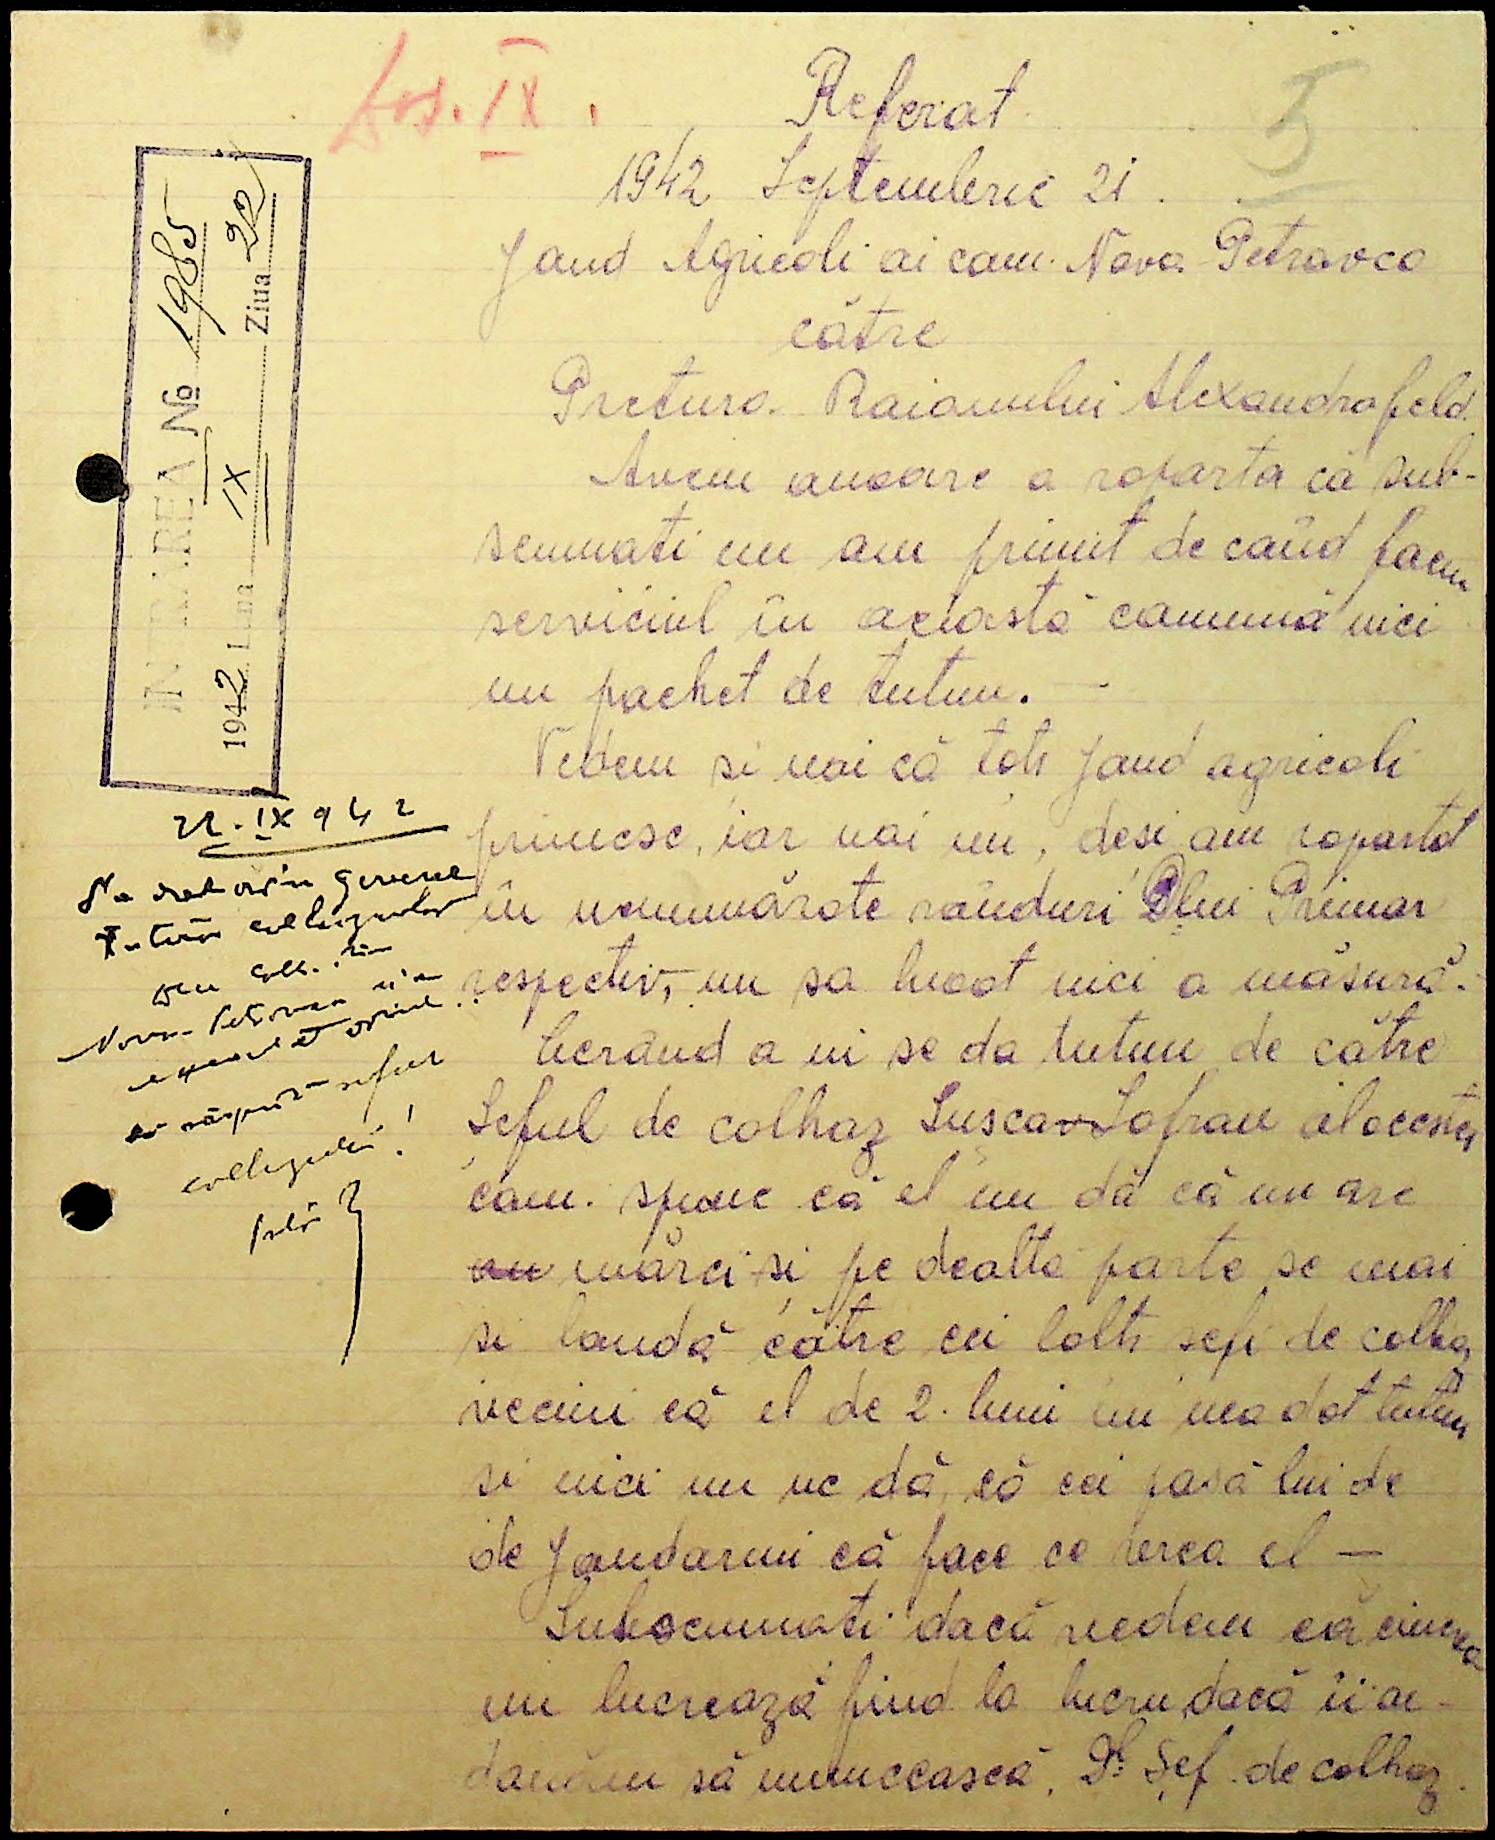 Dos. IX.
5
Referat
1942 Septembrie 21.
Jand Agricoli ai com. Nova Petrovca
către
Pretura Raionului Alexandrofeld.
Avem onoare a raporta că sub-
semnati nu am primit de când facem
serviciul în aciastă comună nici
un pachet de tutun. —
Vedem si noi că toti jand agricoli
primesc, iar noi nu, desi am raportat
în nenumărate rânduri Dlui Primar
respectiv, nu sa luoat nici o măsură.
Cerând a ni se da tutun de către
Seful de colhoz Suscov Sofran al acestei
com. spune că el nu dă că nu are
mărci si pe dealta parte se mai
si laudă către cei lalti sefi de colhoz
vecini că el de 2. luni nu nea dat tutun
si nici nu ne dă, că cei pasă lui de
de jandarmi că face ce vrea el —
Subsemnati dacă vedem că cineva
nu lucrează fiind la lucru dacă îi or-
donăm să muncească, Dl. Șef de colhoz
INTRAREA № 1985
1942 Luna IX Ziua 22
22.IX 942
S'a dat ordin general
tuturor colhozurilor
Nova-Petrovca n'a
executat ordinul.
să răspundă seful
colhozului!